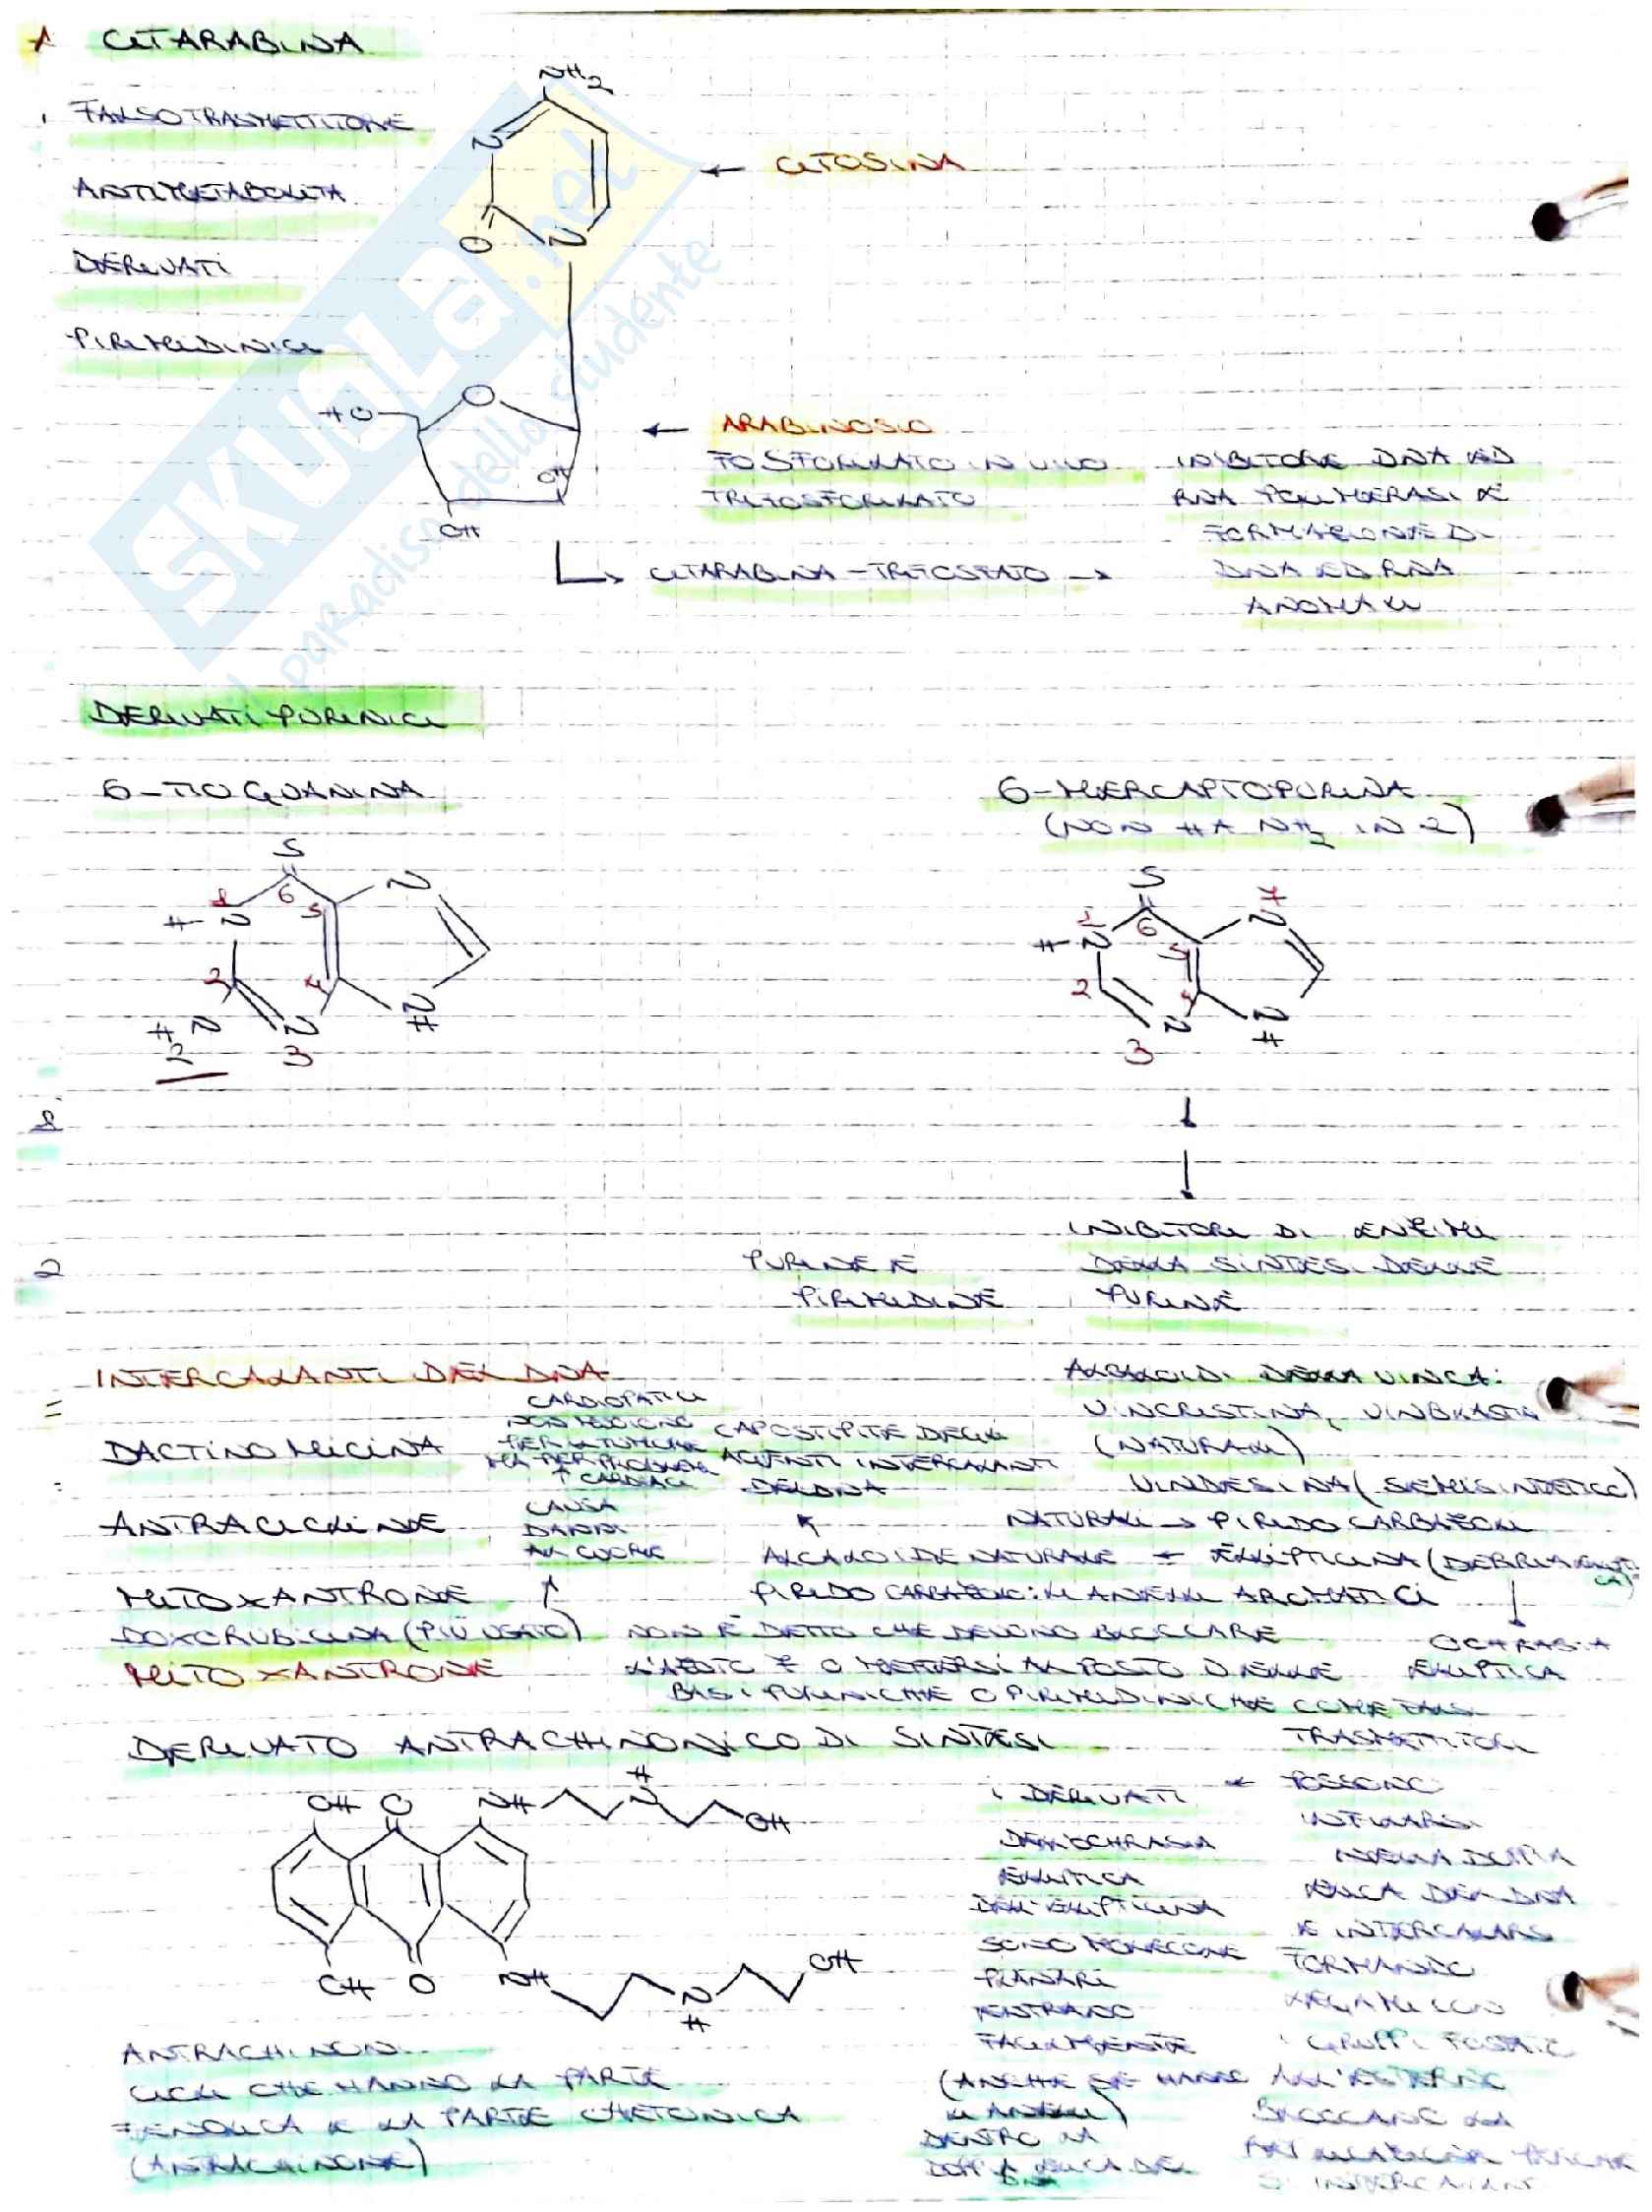 1 CITARABINA
FALSO TRASMETTITORE
ANTIMETABOLITA
DERIVATI
PIRIMIDINICI
NH2
N
O
N
← CITOSINA
HO
O
OH
OH
← ARABINOSIO
FOSFORILATO IN VIVO
TRIFOSFORILATO
CITARABINA-TRIFOSFATO →
INIBITORE DNA ED
RNA POLIMERASI E
FORMAZIONE DI
DNA ED RNA
ANOMALI
SKUOLA.net
il paradiso dello studente
DERIVATI PURINICI
6-TIOGUANINA
S
6
1
5
N
H-N
2
4
H N
2
N
3
N
H
6-MERCAPTOPURINA
(NON HA NH2 IN 2)
S
6
1
7
5
N
H-N
2
4
N
3
N
H
2
PURINE E
PIRIMIDINE
INIBITORI DI ENZIMI
DELLA SINTESI DELLE
PURINE
INTERCALANTI DEL DNA
DACTINOMICINA
ANTRACICLINE
MITOXANTRONE
DOXORUBICINA (PIÙ USATO)
MITOXANTRONE
CARDIOPATICI
NON MUOIONO
PER IL TUMORE
MA PER PROBLEMI
CARDIACI
↑
CAUSA
DANNI
AL CUORE
↑
CAPOSTIPITE DEGLI
AGENTI INTERCALANTI
DEL DNA
ALCALOIDI DELLA VINCA:
VINCRISTINA, VINBLASTI
(NATURALI)
VINDESINA (SEMISINTETICO)
NATURALI → PIRIDO CARBAZOLI
ALCALOIDE NATURALE ← ELLIPTICINA
PIRIDO CARBAZOLO: 4 ANELLI AROMATICI
OCHRASIA
ELLIPTICA
NON È DETTO CHE DEVONO BLOCCARE
O METTERSI AL POSTO DELLE
BASI PURINICHE O PIRIMIDINICHE COME FALSI
TRASMETTITORI
DERIVATO ANTRACHINONICO DI SINTESI
OH O NH
H
N
OH
OH O NH
N
H
OH
I DERIVATI
DELL'OCHRASIA
ELLIPTICA
DELL'ELLIPTICINA
SONO MOLECOLE
PLANARI
ENTRANO
FACILMENTE
(ANCHE SE HANNO
4 ANELLI)
DENTRO LA
DOPPIA ELICA DEL
DNA
← POSSONO
INFILARSI
NELLA DOPPIA
ELICA DEL DNA
E INTERCALARSI
FORMANDO
LEGAMI CON
I GRUPPI FOSFATO
ALL'ESTERNO
BLOCCANO LA
SI INTERCALANO
ANTRACHINONI
CICLI CHE HANNO LA PARTE
FENOLICA E LA PARTE CHETONICA
(ANTRACHINONE)